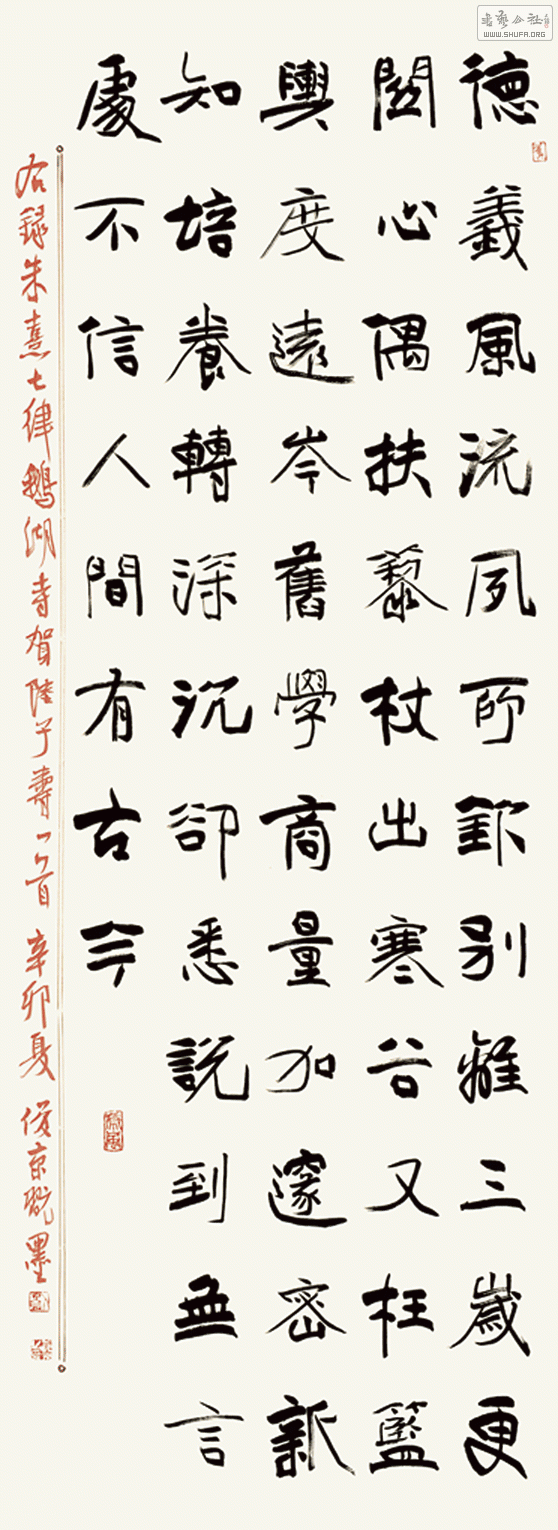 德義風流夙所欽別離三歲更
關心偶扶藜杖出寒谷又枉籃
輿度遠岑舊學商量加邃密新
知培養轉深沉卻悉說到無言
處不信人間有古今
右錄朱熹七律鵝湖寺賀陸子壽一首 辛卯夏 俊京戲墨
書藝公社
WWW.SHUFA.ORG